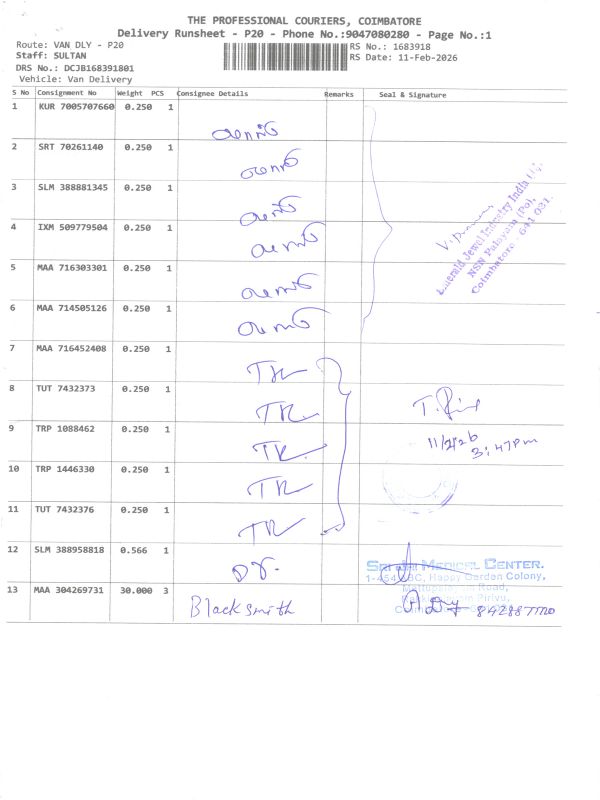 THE PROFESSIONAL COURIERS, COIMBATORE
Delivery Runsheet - P20 - Phone No.:9047080280 - Page No.:1
Route: VAN DLY - P20
RS No.: 1683918
Staff: SULTAN
RS Date: 11-Feb-2026
DRS No.: DCJB168391801
Vehicle: Van Delivery
S No Consignment No Weight PCS Consignee Details Remarks Seal & Signature
1 KUR 7005707660 0.250 1
2 SRT 70261140 0.250 1
3 SLM 388881345 0.250 1
4 IXM 509779504 0.250 1
5 MAA 716303301 0.250 1
6 MAA 714505126 0.250 1
Emerald Jewel Industry India
NSN Palayam (Po),
Coimbatore - 641 031.
7 MAA 716452408 0.250 1 TR
8 TUT 7432373 0.250 1 TR
9 TRP 1088462 0.250 1 TR
11/2/26
3:47pm
10 TRP 1446330 0.250 1 TR
11 TUT 7432376 0.250 1 TR
12 SLM 388958818 0.566 1
MEDICAL CENTER.
Happy Garden Colony,
Road,
Pirivu,
13 MAA 304269731 30.000 3 Blacksmith